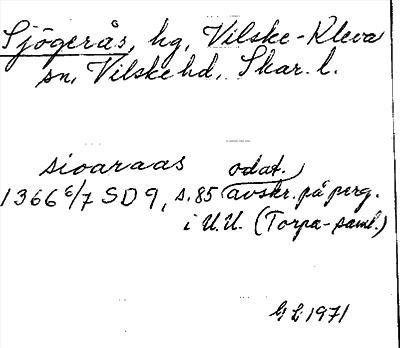 Sjögerås, hg, Vilske-Kleva
sn, Vilske hd, Skar. l.
sioaraas odat.
1366 6/7 SD 9, s. 85 avskr. på perg.
i U.U. (Torpa-saml.)
G L 1971